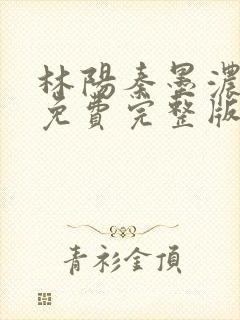 林陽秦墨濃
免費完整版
青衫金頂